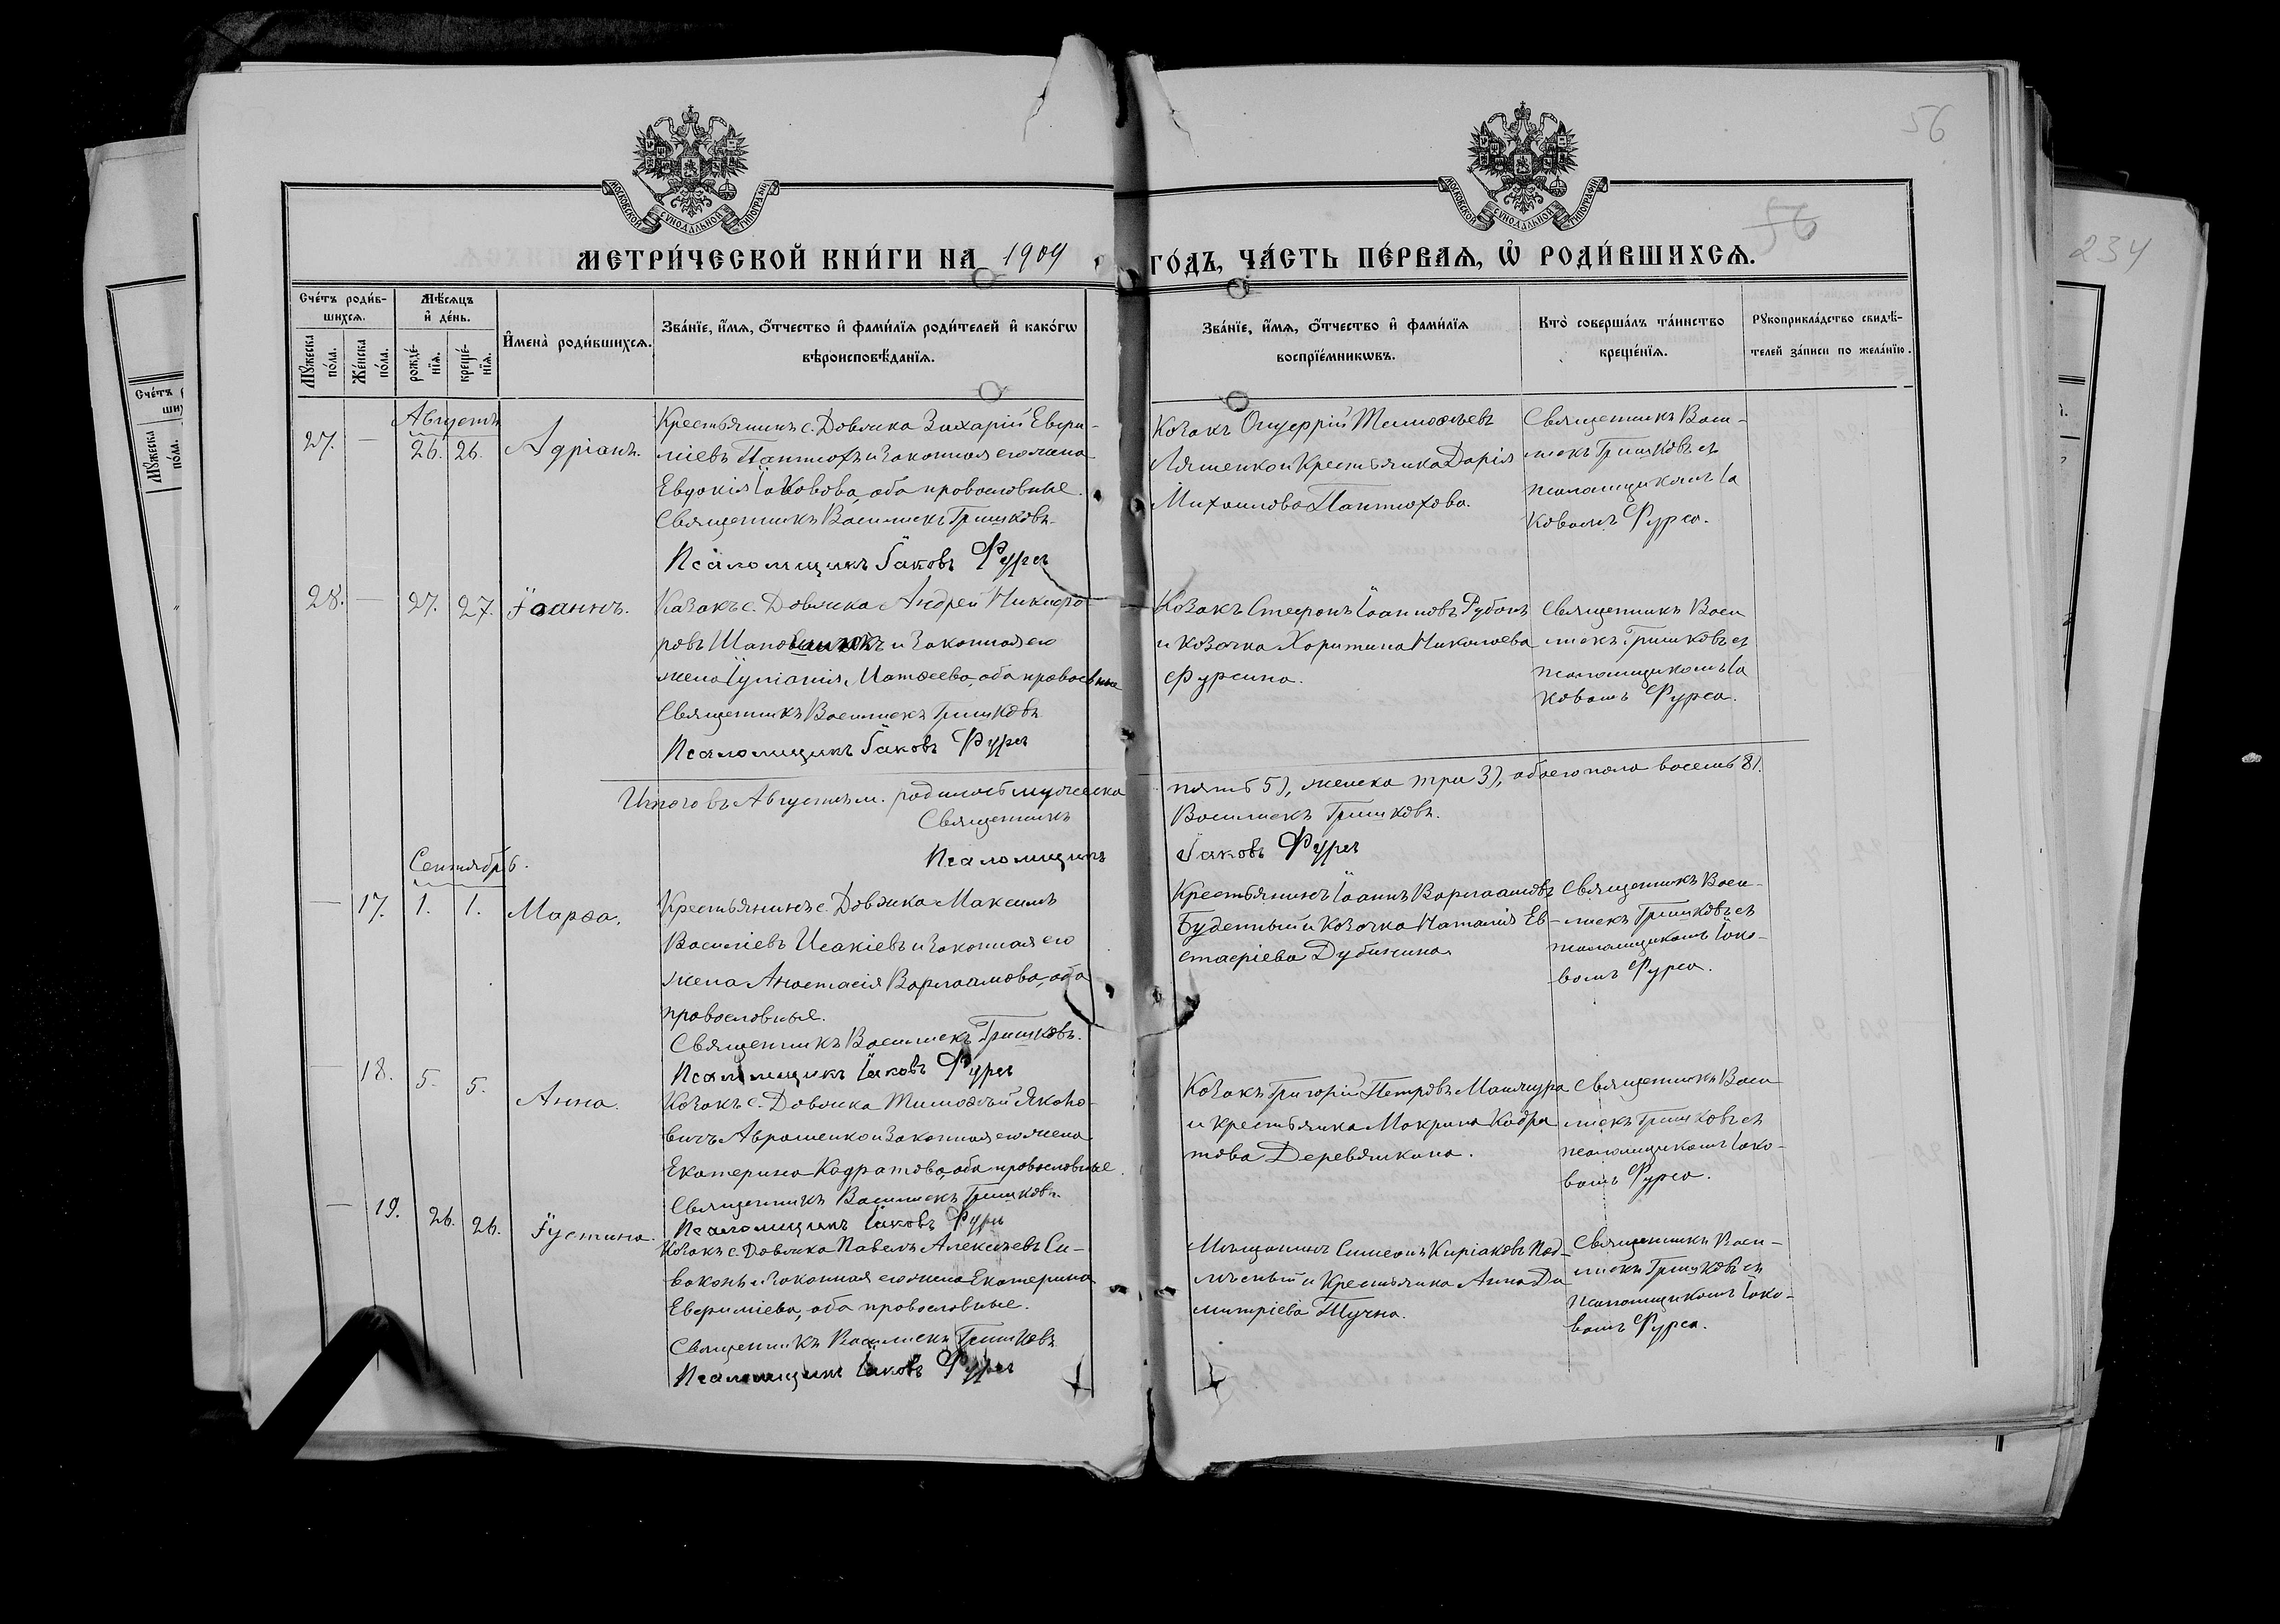 56
56
234
МОСКОВСКОЙ СУНОДАЛЬНОЙ ТИПОГРАФІИ
МОСКОВСКОЙ СУНОДАЛЬНОЙ ТИПОГРАФІИ
МЕТРИ́ЧЕСКОЙ КНИ́ГИ НА 1909 ГО́ДЪ, ЧА́СТЬ ПЕ́РВАЯ, Ѡ РОДИ́ВШИХСѦ.
Сче́тъ роди́в-
шихсѧ.
Мѣ́сѧцъ
и҆ де́нь.
Мꙋ́жеска по́ла.
Же́нска по́ла.
рожде́-нїѧ.
креще́-нїѧ.
И҆мена̀ роди́вшихсѧ.
Зва́нїе, и҆́мѧ, ѻ҆́тчество и҆ фами́лїѧ роди́телей и҆ како́гѡ
вѣроисповѣ́данїѧ.
Зва́нїе, и҆́мѧ, ѻ҆́тчество и҆ фами́лїѧ
воспрїе́мникѡвъ.
Кто̀ соверша́лъ та́инство
креще́нїѧ.
Рꙋкоприкла́дство свидѣ́-
телей за́писи по жела́нїю.
Августъ
27. — 26. 26. Адріанъ.
Крестьянинъ с. Довжика Захарій Евфи-
міевъ Пантюхъ и законная его жена
Евдокія Іаковова, оба православные.
Священникъ Василискъ Гришковъ.
Псаломщикъ Іаковъ Фурса
Козакъ Онуфрій Тимофѣевъ
Ляшенко и крестьянка Дарія
Михаилова Пантюхова.
Священникъ Васи-
лискъ Гришковъ съ
псаломщикомъ Іа
ковомъ Фурса.
28. — 27. 27. Іоаннъ.
Казакъ с. Довжика Андрей Никифо-
ровъ и законная его
жена Іуліанія Матѳеева, оба правосвные
Священникъ Василискъ Гришковъ
Псаломщикъ Іаковъ Фурса
Козакъ Стефанъ Іоанновъ Рубанъ
и козачка Харитина Николаева
Фурсина.
Священникъ Васи
лискъ Гришковъ съ
псаломщикомъ Іа
ковомъ Фурса.
Итого въ Августѣ м. родилось мужеска пять 5), женска три 3), обоего пола восемь 8).
Священникъ Василискъ Гришковъ.
Псаломщикъ Іаковъ Фурса
Сентябрь.
— 17. 1. 1. Марѳа.
Крестьянинъ с. Довжика Максимъ
Василіевъ Исакіевъ и законная его
жена Анастасія Варлаамова, оба
православные.
Священникъ Василискъ Гришковъ.
Псаломщикъ Іаковъ Фурса
Крестьянинъ Іоаннъ Варлаамовъ
Буденный и козачка Наталія Ев-
стафіева Дубинина.
Священникъ Васи-
лискъ Гришковъ съ
псаломщикомъ Іако-
вомъ Фурса.
— 18. 5. 5. Анна.
Козакъ с. Довжика Тимофѣй Яково-
вичъ Аврашенко и законная его жена
Екатерина Кодратова, оба православные.
Священникъ Василискъ Гришковъ.
Псаломщикъ Іаковъ Фурса
Козакъ Григорій Петровъ Манжура
и крестьянка Макрина Кодра
това Деревянкина.
Священникъ Васи
лискъ Гришковъ съ
псаломщикомъ Іако-
вомъ Фурса.
— 19. 26. 26. Іустина.
Козакъ с. Довжика Павелъ Алексѣевъ Си-
воконь и законная его жена Екатерина
Евфиміева, оба православные.
Священникъ Василискъ Гришковъ
Псаломщикъ Іаковъ Фурса
Мѣщанинъ Симеонъ Киріаковъ Под-
лѣсный и крестьянка Анна Ди
митріева Тучна.
Священникъ Васи-
лискъ Гришковъ съ
псаломщикомъ Іако-
вомъ Фурса.